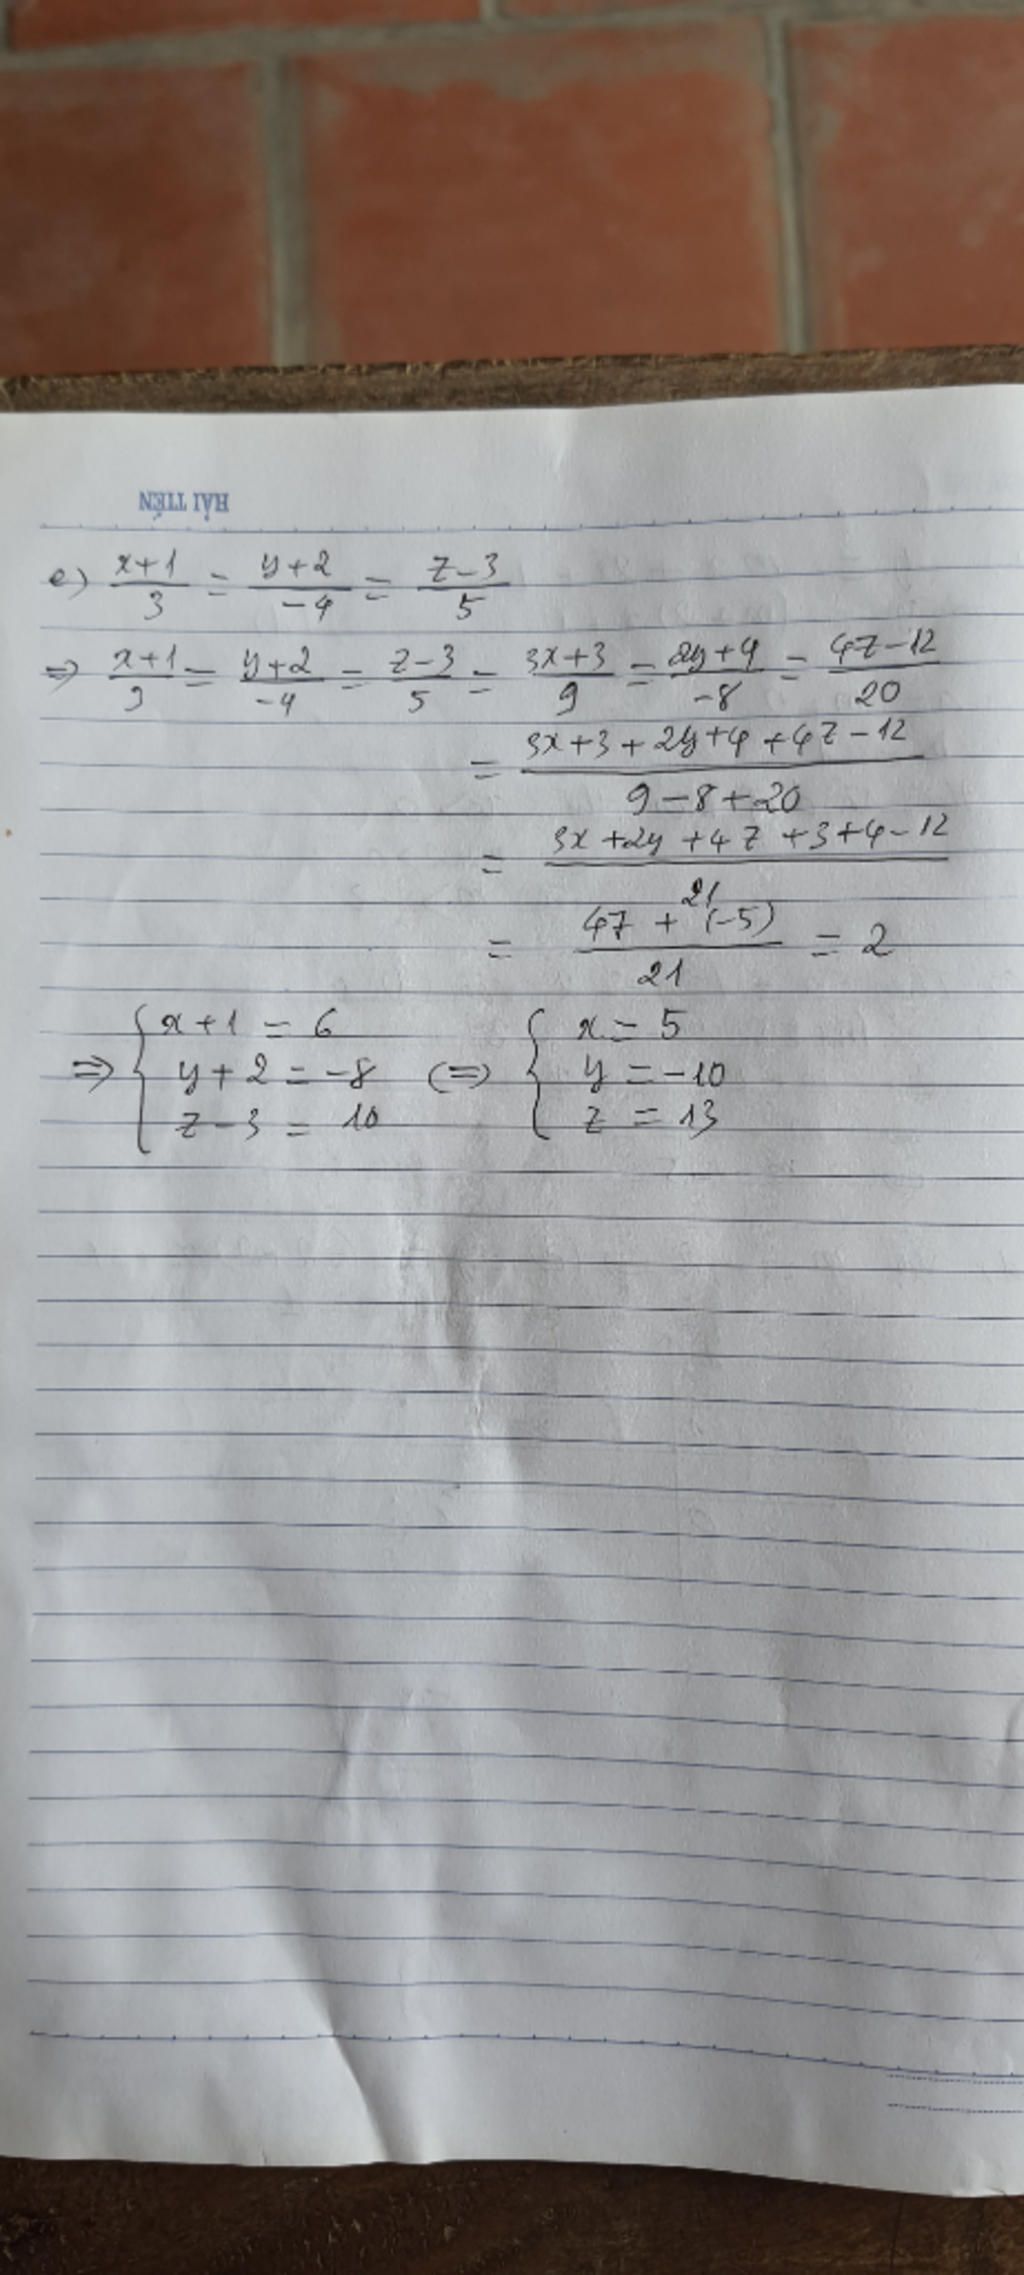 HẢI TIẾN
e) \frac{x+1}{3} = \frac{y+2}{-4} = \frac{z-3}{5}
=> \frac{x+1}{3} = \frac{y+2}{-4} = \frac{z-3}{5} = \frac{3x+3}{9} = \frac{2y+4}{-8} = \frac{4z-12}{20}
= \frac{3x+3+2y+4+4z-12}{9-8+20}
= \frac{3x+2y+4z+3+4-12}{21}
= \frac{47+(-5)}{21} = 2
=> { x+1 = 6 (=) { x = 5
y+2 = -8 y = -10
z-3 = 10 z = 13